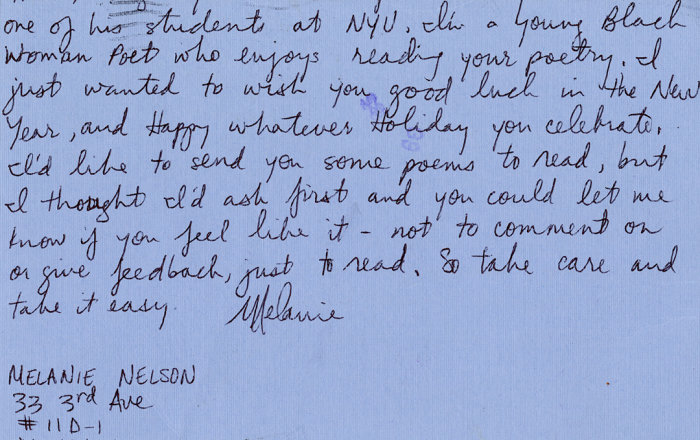 one of his students at NYU. I'm a young Black
Woman Poet who enjoys reading your poetry. I
just wanted to wish you good luck in the New
Year, and Happy whatever Holiday you celebrate.
I'd like to send you some poems to read, but
I thought I'd ask first and you could let me
know if you feel like it - not to comment on
or give feedback, just to read. So take care and
take it easy. Melanie
MELANIE NELSON
33 3rd Ave
# 11D-1